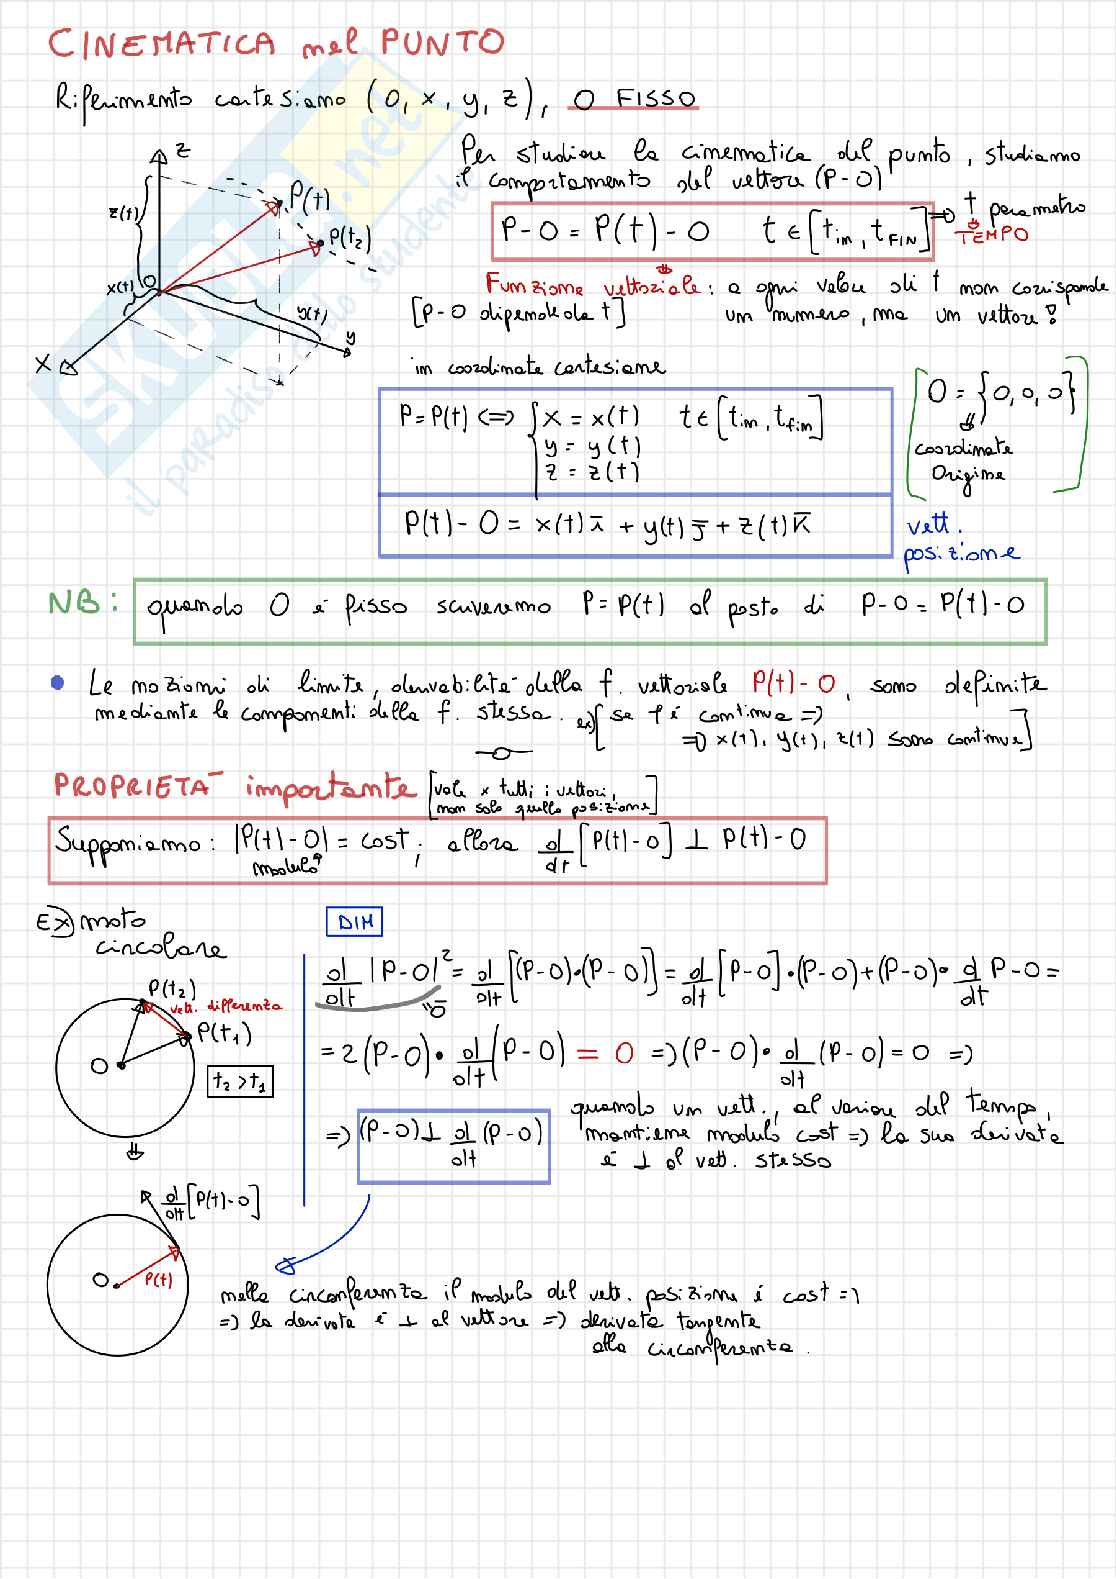 CINEMATICA nel PUNTO
Riferimento cartesiano (O, x, y, z), O FISSO
Per studiare la cinematica del punto, studiamo
il comportamento del vettore (P-O)
P-O = P(t)-O t ∈ [t_in, t_FIN] => t parametro
⇓
TEMPO
Funzione vettoriale: a ogni valore di t non corrisponde
[P-O dipende da t] un numero, ma un vettore!
z
z(t)
P(t)
P(t₂)
x(t)
O
y(t)
y
x
in coordinate cartesiane
P=P(t) <=> { x = x(t) t ∈ [t_in, t_fin]
y = y(t)
z = z(t)
[O = {0,0,0}
⇓
coordinate
Origine]
P(t)-O = x(t) i̅ + y(t) j̅ + z(t) k̅
vett.
posizione
NB: quando O è fisso scriveremo P=P(t) al posto di P-O = P(t)-O
• Le nozioni di limite, derivabilità della f. vettoriale P(t)-O, sono definite
mediante le componenti della f. stessa. ex) [se f è continua =>
=> x(t), y(t), z(t) sono continue]
PROPRIETA' importante [vale x tutti i vettori,
non solo quello posizione]
Supponiamo: |P(t)-O| = cost; allora d/dt [P(t)-O] ⊥ P(t)-O
modulo↑
EX) moto
circolare
P(t₂)
vett. differenza
P(t₁)
O
t₂>t₁
⇓
d/dt [P(t)-O]
O
P(t)
DIM
d/dt |P-O|² = d/dt [(P-O)•(P-O)] = d/dt [P-O]•(P-O)+(P-O)• d/dt P-O =
"0̅
= 2(P-O)• d/dt (P-O) = 0 => (P-O)• d/dt (P-O) = 0 =>
=> (P-O) ⊥ d/dt (P-O)
quando un vett., al variare del tempo,
mantiene modulo cost => la sua derivata
è ⊥ al vett. stesso
nella circonferenza il modulo del vett. posizione è cost =>
=> la derivata è ⊥ al vettore => derivata tangente
alla circonferenza.
SKUOLA.net
il paradiso dello studente